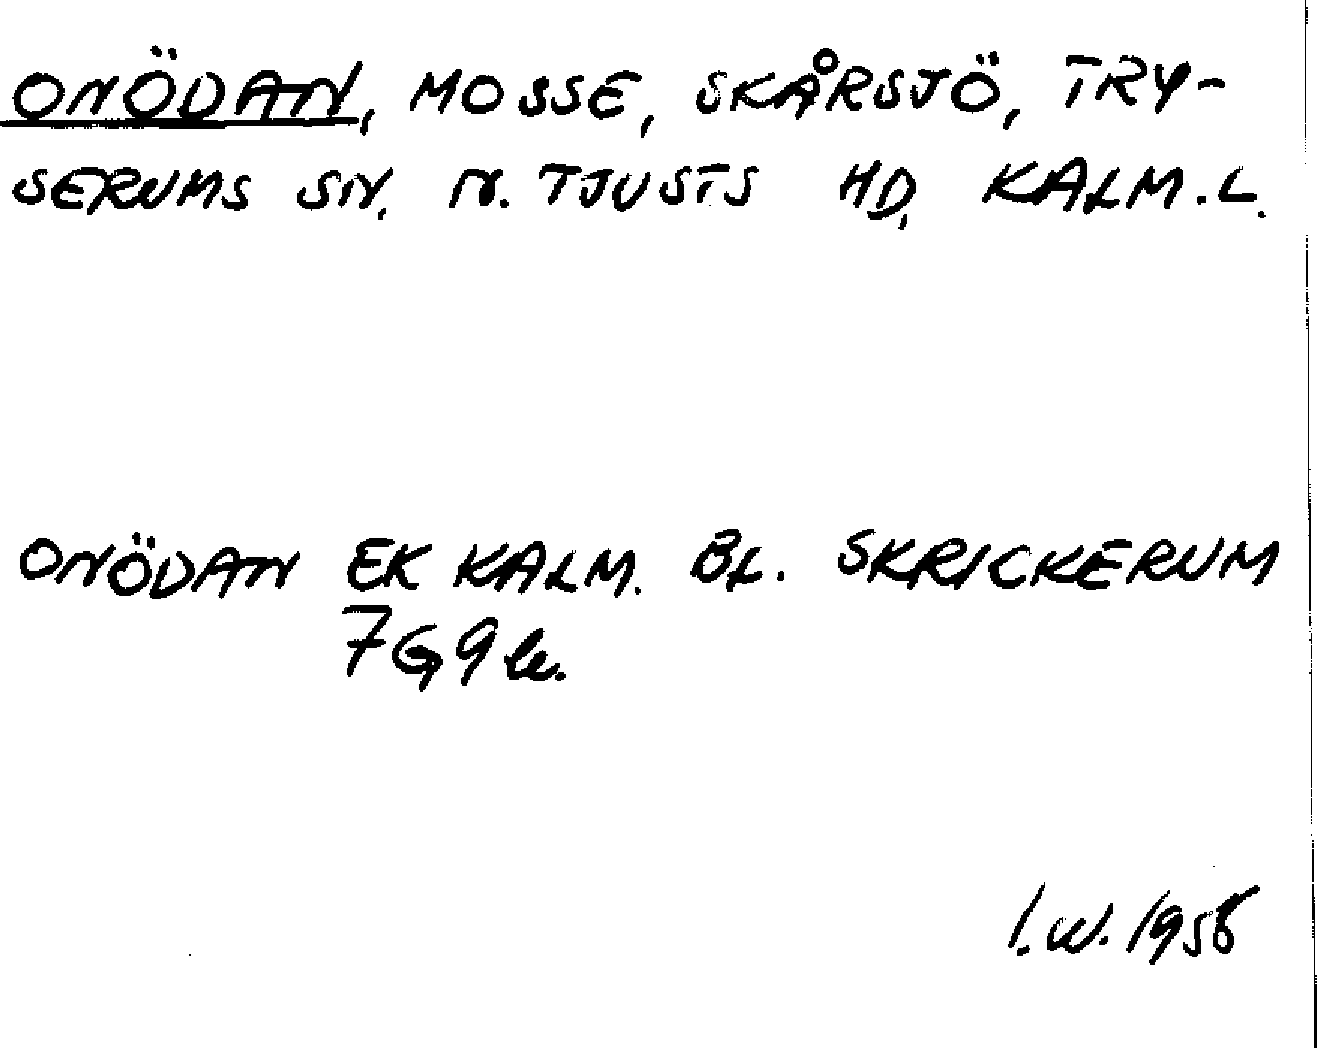 ONÖDAN, MOSSE, SKÅRSJÖ, TRY-
SERUMS SN. N. TJUSTS HD, KALM. L.
ONÖDAN EK KALM. BL. SKRICKERUM
7G9
I.W. 1958